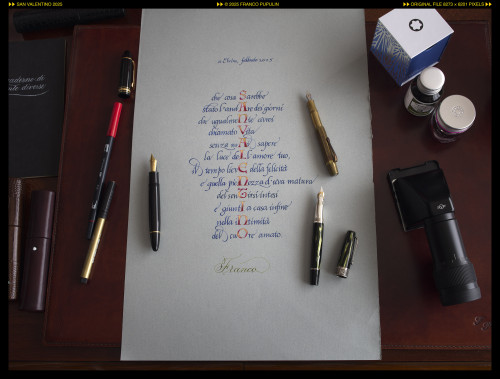 SAN VALENTINO 2025
© 2025 FRANCO PUPULIN
ORIGINAL FILE 8273 x 6201 PIXELS
febbraio 2025
che cosa Sarebbe
stato l'andAre dei giorni
che ugualmeNte avrei
chiamato Vita
senza mAi sapere
la luce deLl'amore tuo,
il tempo liEve della felicità
e quella pieNezza d'uva matura
del senTirsi intesi
e giuntI a casa infine
nella iNtimità
del cuOre amato.
Franco
uaderno di
diverse